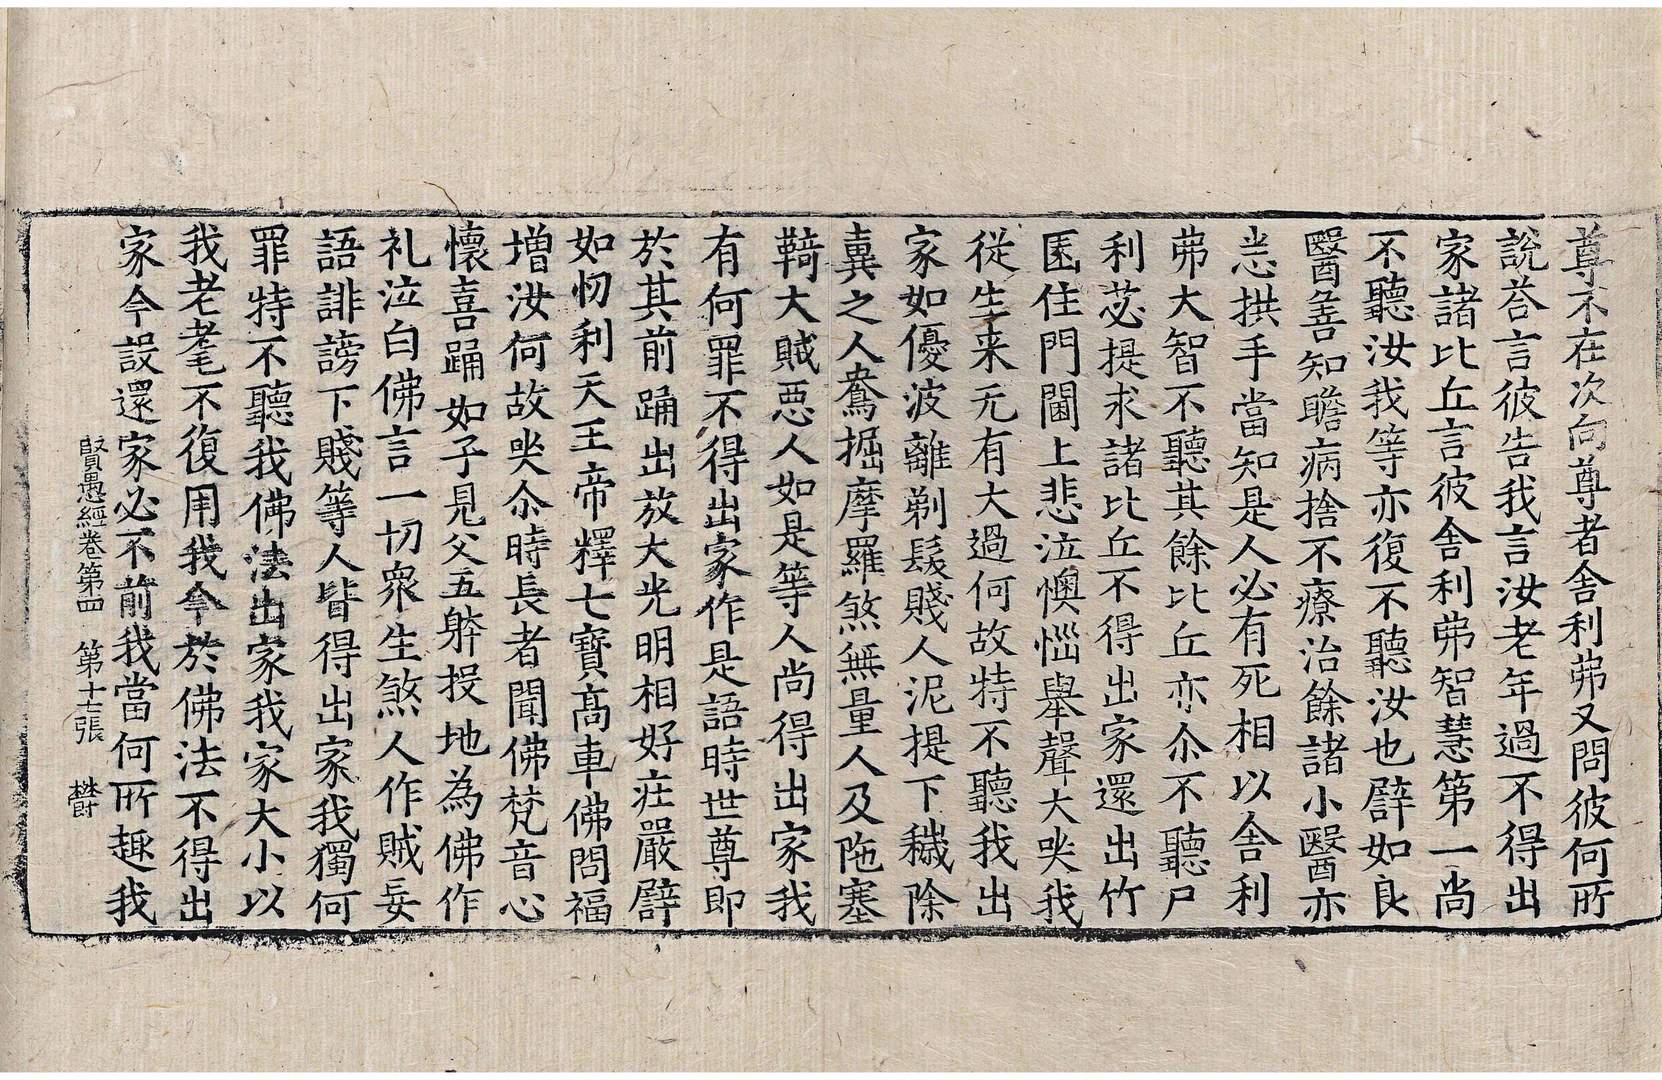 尊不在次向尊者舍利弗又問彼何所
說荅言彼告我言汝老年過不得出
家諸比丘言彼舍利弗智慧第一尚
不聽汝我等亦復不聽汝也譬如良
醫善知瞻病捨不療治餘諸小醫亦
恙拱手當知是人必有死相以舍利
弗大智不聽其餘比丘亦尒不聽尸
利苾提求諸比丘不得出家還出竹
園住門閫上悲泣懊惱舉聲大哭我
從生来无有大過何故特不聽我出
家如優波離剃髮賤人泥提下穢除
糞之人鴦掘摩羅煞無量人及陁塞
鞞大賊惡人如是等人尚得出家我
有何罪不得出家作是語時世尊即
於其前踊出放大光明相好庄嚴譬
如忉利天王帝釋七寶高車佛問福
增汝何故哭尒時長者聞佛梵音心
懷喜踊如子見父五躰投地為佛作
礼泣白佛言一切衆生煞人作賊妄
語誹謗下賤等人皆得出家我獨何
罪特不聽我佛法出家我家大小以
我老耄不復用我今於佛法不得出
家今設還家必不前我當何所趣我
賢愚經卷第四 第十七張 欝